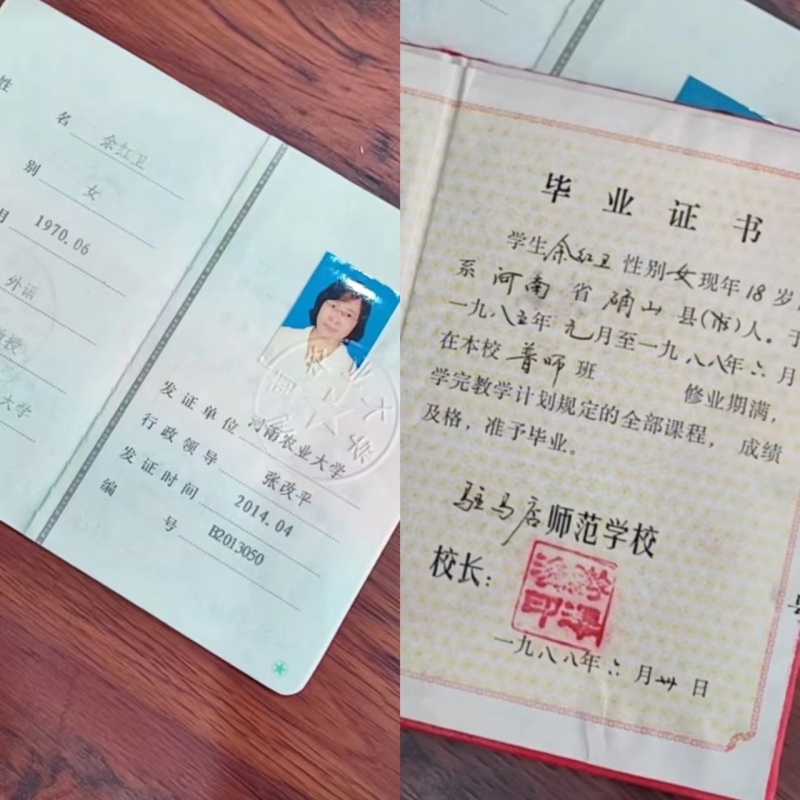 姓
名 余红卫
别 女
月 1970.06
外语
教授
大学
发证单位 河南农业大学
行政领导 张改平
发证时间 2014.04
编号 B2013050
毕业证书
学生余红卫性别女现年18岁
系河南省确山县(市)人。于
一九八五年元月至一九八八年六月
在本校普师班 修业期满，
学完教学计划规定的全部课程，成绩
及格，准予毕业。
驻马店师范学校
校长：
一九八八年六月卅日